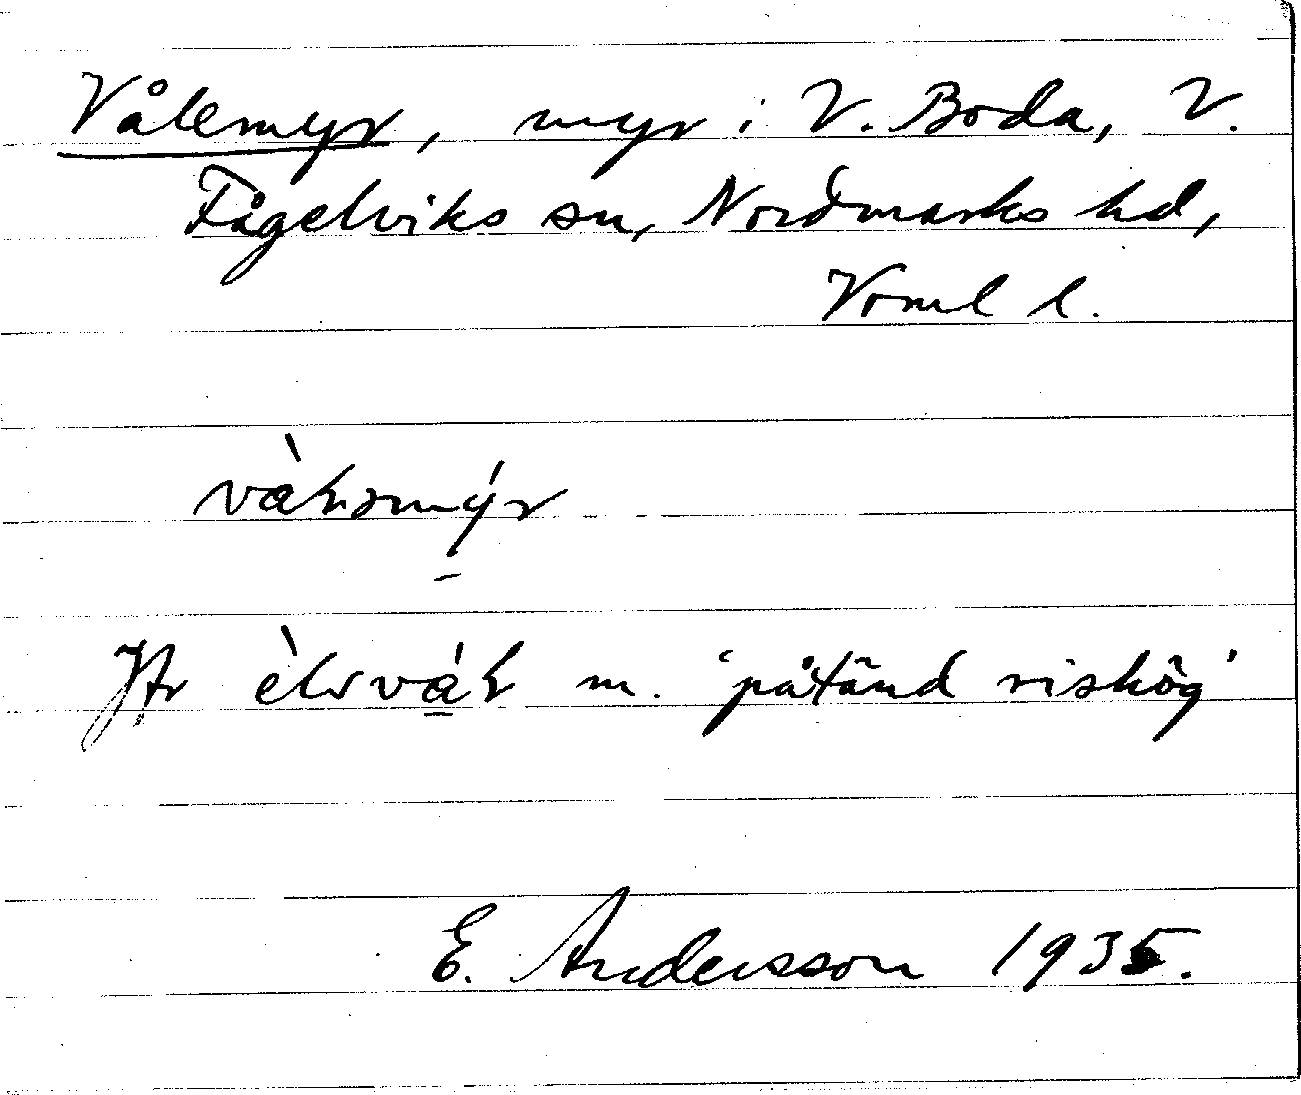 Vålemyr, myr i V. Boda, V.
Fågelviks sn, Nordmarks hd,
Vrml l.
Jfr m. 'påtänd rishög'
E. Andersson 1935.